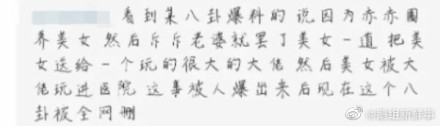 看到集八卦爆料的 说因为亦亦圈
养美女 然后斥斥老婆就罢了美女一道 把美
女送给一个玩的很大的大佬 然后美女被大
佬玩进医院 这事被人爆出来后现在这个八
卦被全网删